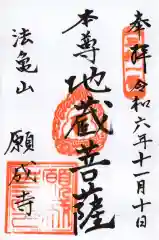 奉拝 令和六年十一月十日
本尊 地蔵菩薩
法亀山
願成寺